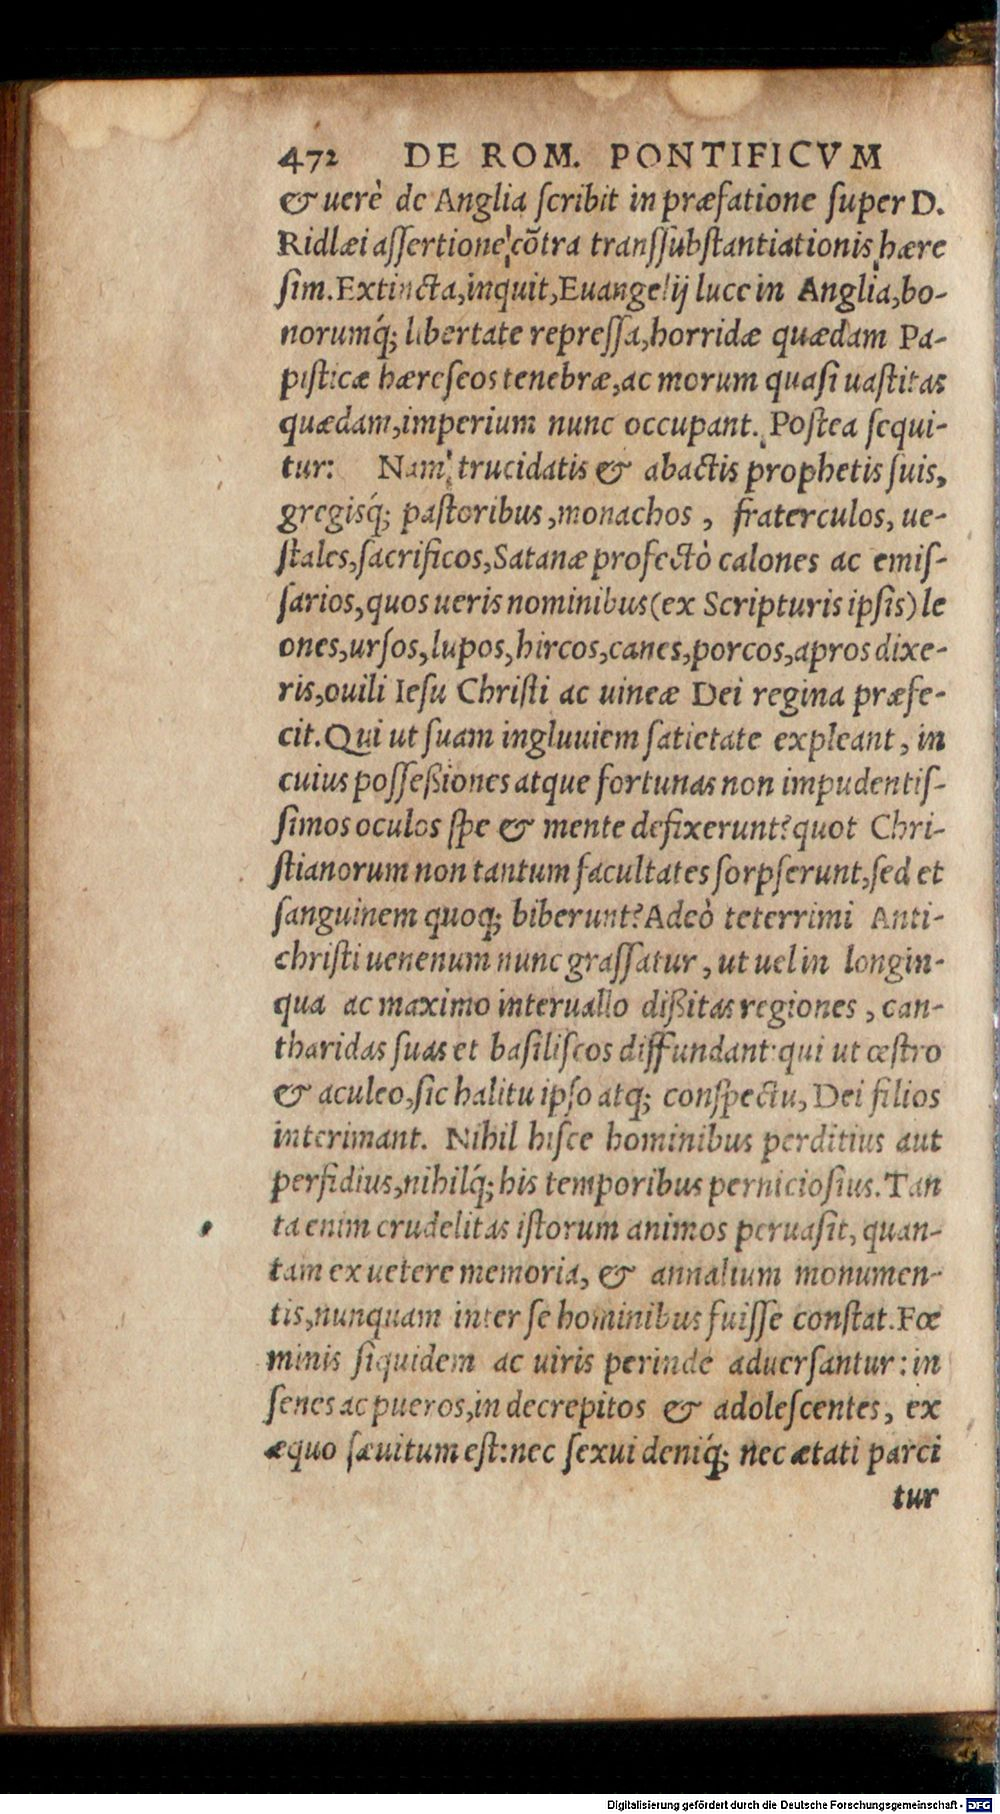 472 DE ROM. PONTIFICVM
& uerè de Anglia ſcribit in præfatione ſuper D.
Ridlæi aſſertione cõtra tranſſubſtantiationis hære
ſim. Extincta, inquit, Euangelij luce in Anglia, bo-
norumq́; libertate repreſſa, horridæ quædam Pa-
piſticæ hæreſeos tenebræ, ac morum quaſi uaſtitas
quædam, imperium nunc occupant. Poſtea ſequi-
tur: Nam trucidatis & abactis prophetis ſuis,
gregisq́; paſtoribus, monachos, fraterculos, ue-
ſtales, ſacrificos, Satanæ profectò calones ac emiſ-
ſarios, quos ueris nominibus (ex Scripturis ipſis) le
ones, urſos, lupos, hircos, canes, porcos, apros dixe-
ris, ouili Ieſu Chriſti ac uineæ Dei regina præfe-
cit. Qui ut ſuam ingluuiem ſatietate expleant, in
cuius poſſeßiones atque fortunas non impudentiſ-
ſimos oculos ſpe & mente defixerunt? quot Chri-
ſtianorum non tantum facultates ſorpſerunt, ſed et
ſanguinem quoq; biberunt? Adeò teterrimi Anti-
chriſti uenenum nunc graſſatur, ut uel in longin-
qua ac maximo interuallo dißitas regiones, can-
tharidas ſuas et baſiliſcos diffundant: qui ut œſtro
& aculeo, ſic halitu ipſo atq; conſpectu, Dei filios
interimant. Nihil hiſce hominibus perditius aut
perfidius, nihilq́; his temporibus pernicioſius. Tan
ta enim crudelitas iſtorum animos peruaſit, quan-
tam ex uetere memoria, & annalium monumen-
tis, nunquam inter ſe hominibus fuiſſe conſtat. Fœ
minis ſiquidem ac uiris perinde aduerſantur: in
ſenes ac pueros, in decrepitos & adoleſcentes, ex
æquo ſæuitum eſt: nec ſexui deniq́; nec ætati parci
tur
Digitalisierung gefördert durch die Deutsche Forschungsgemeinschaft - DFG